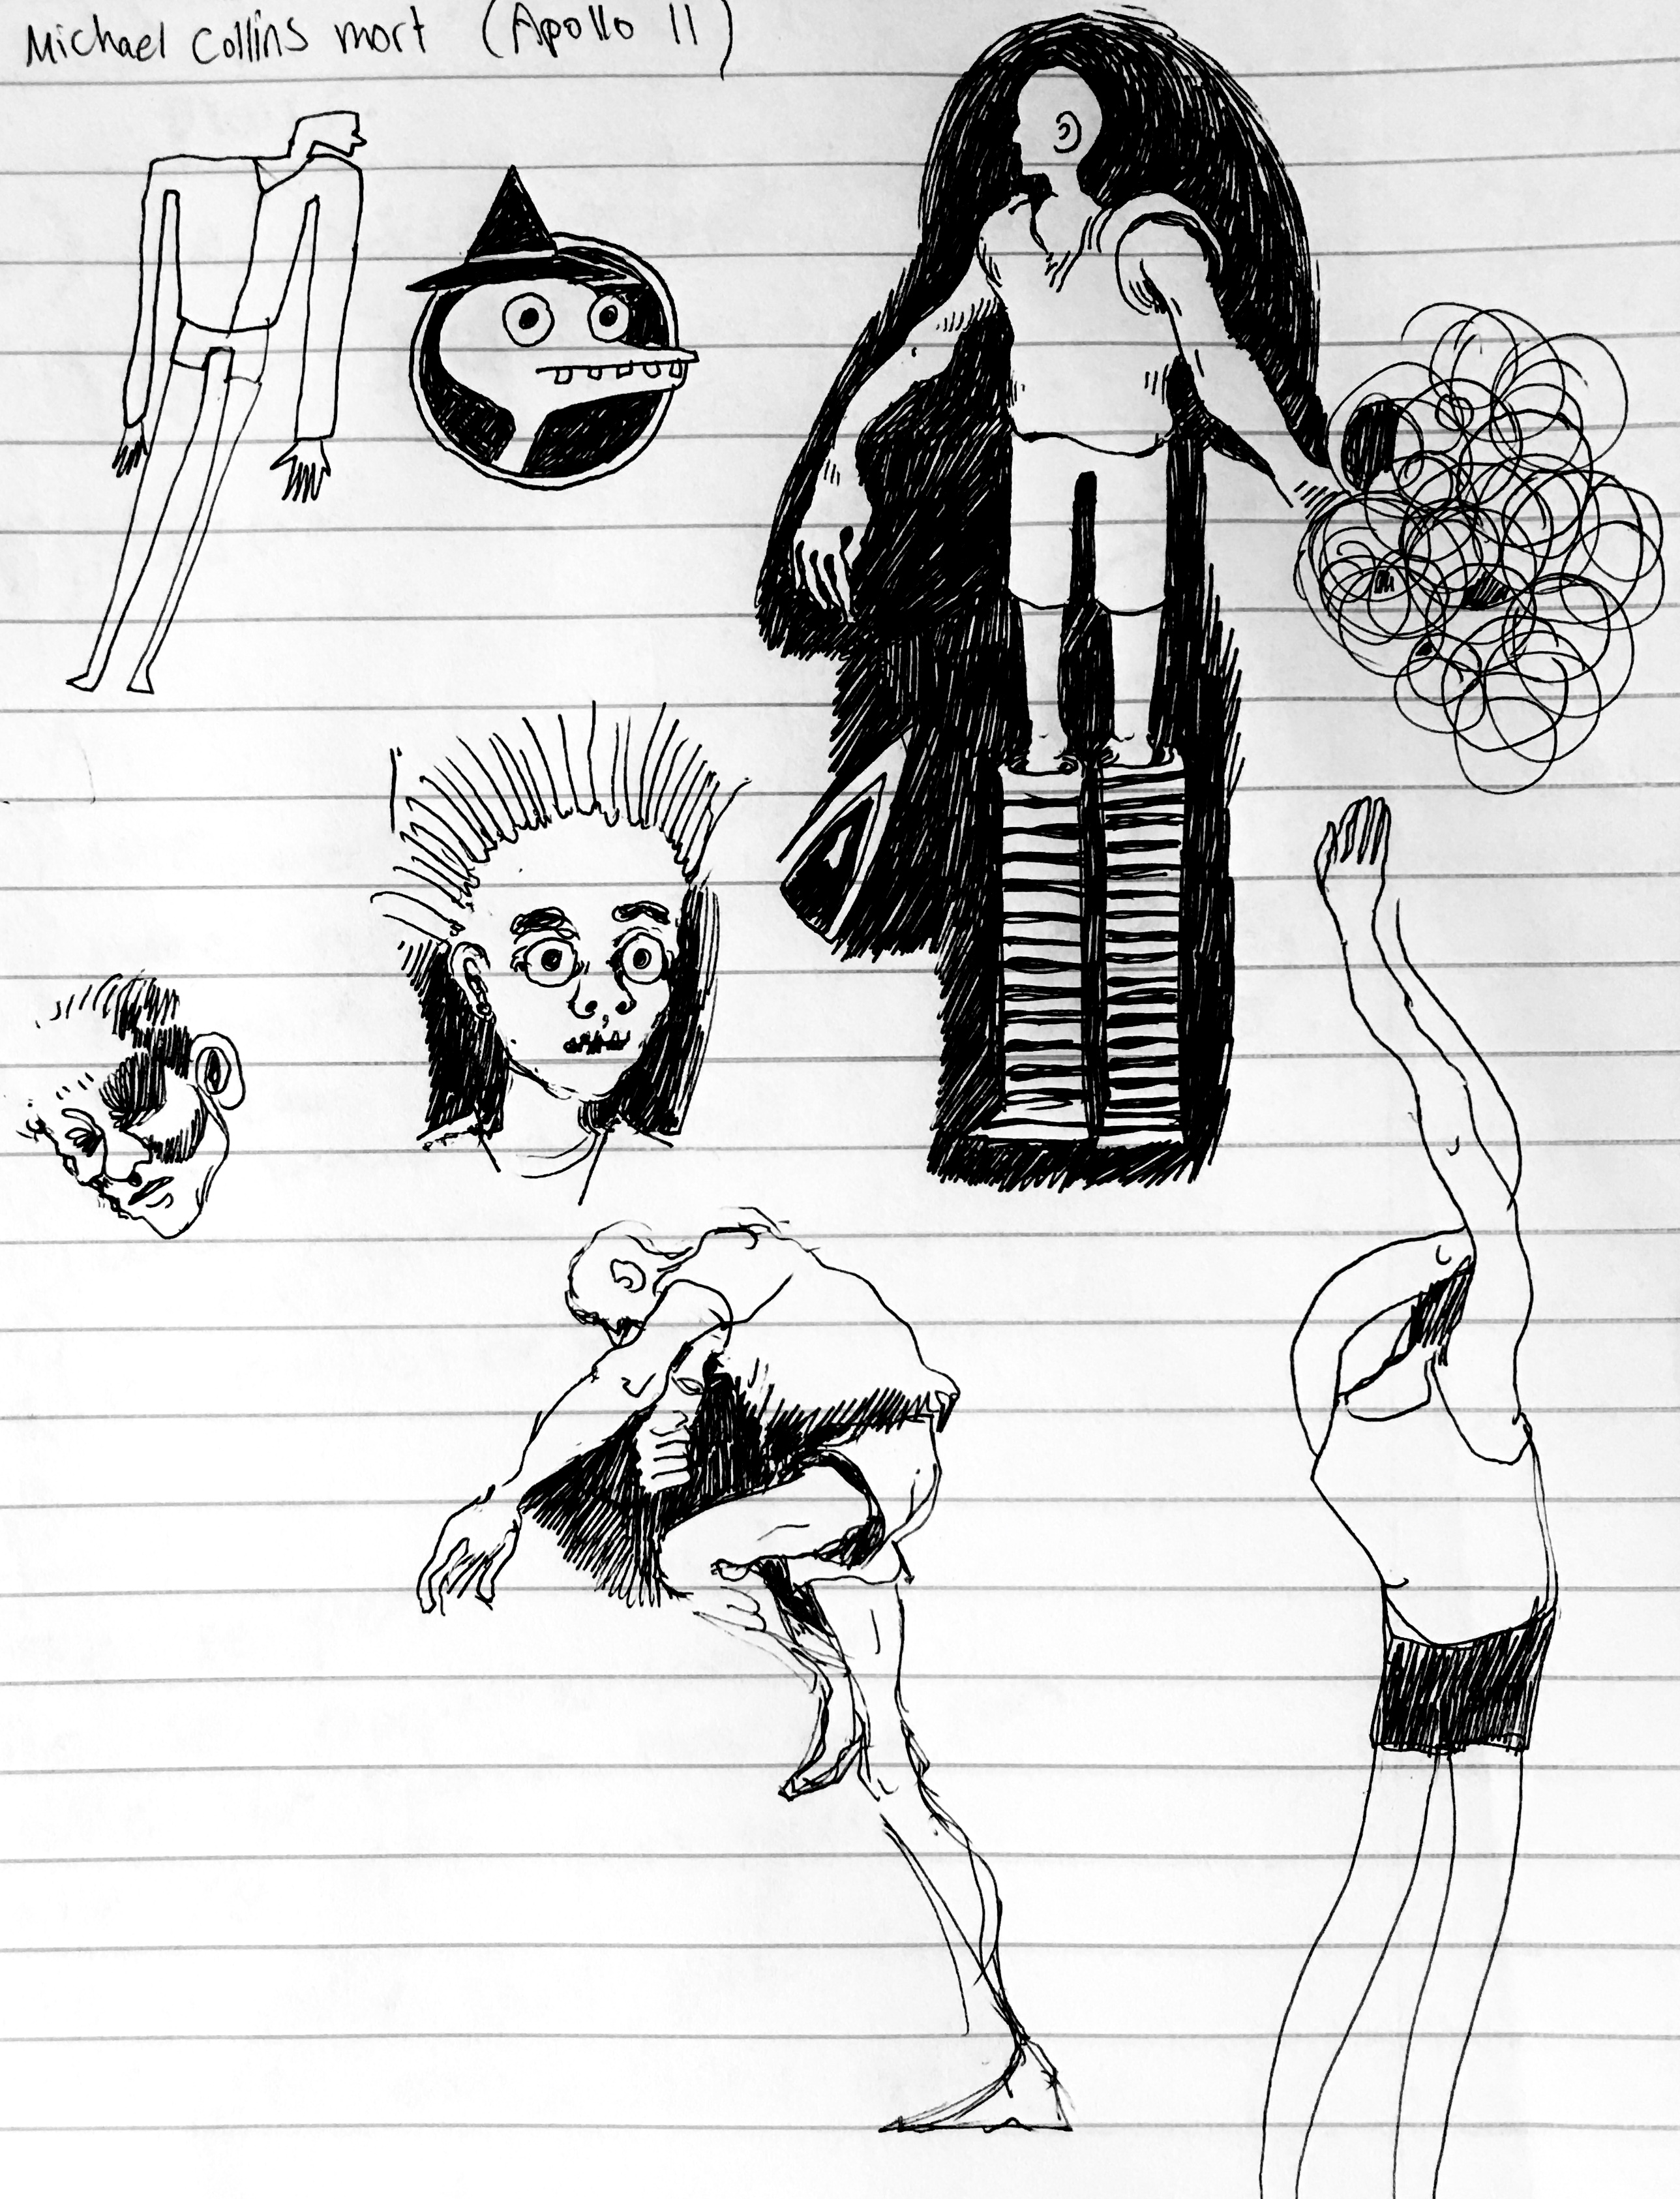 Michael Collins mort (Apollo 11)